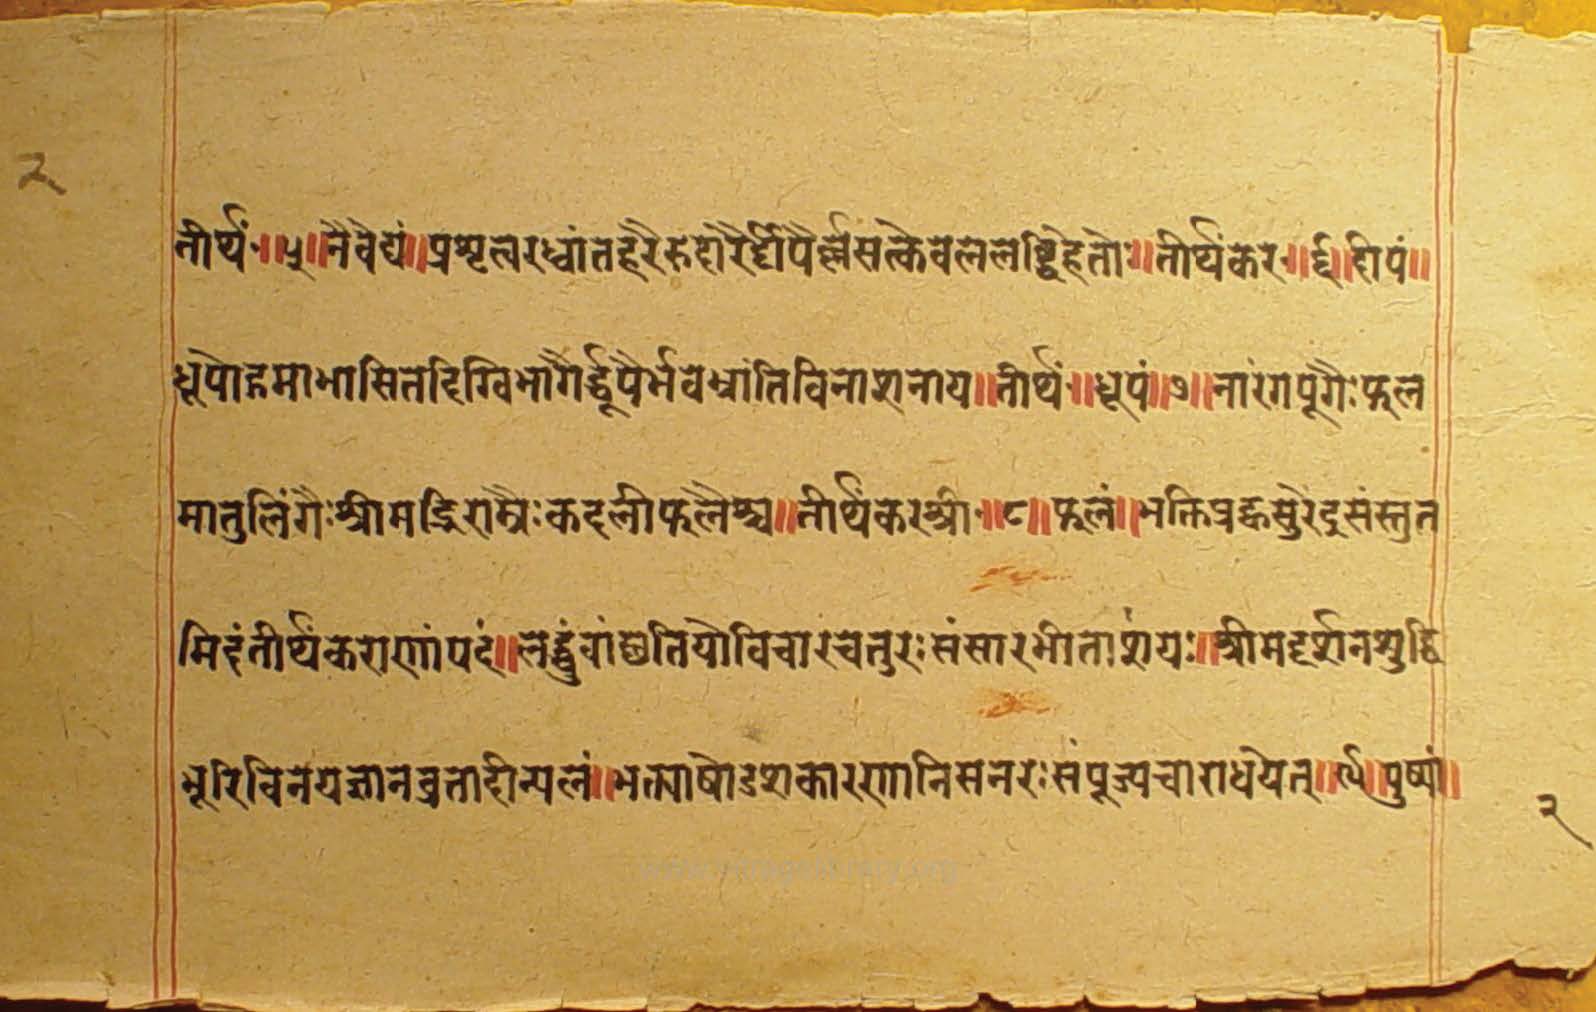 २
तीर्थं॰॥५॥नैवेद्यं॥प्रभृत्वरध्वांतहरैरुदारैर्दीपैर्ल्लसत्केवललब्धिहेतोः॥तीर्थंकर॰॥६॥दीपं॥
धूपोद्गमाभासितदिग्विभागैर्द्धूपैर्भवभ्रांतिविनाशनाय॥तीर्थं॰॥धूपं॥७॥नारंगपूगैःफल
मातुलिंगैःश्रीमद्भिराम्रैःकदलीफलैश्च॥तीर्थंकरश्री॰॥८॥फलं॥भक्तिप्रह्वसुरेंद्रसंस्तुत
मिदंतीर्थंकराणांपदं॥लब्धुंवांछतियोविचारचतुरःसंसारभीताशयः॥श्रीमद्दर्शनशुद्धि
भूरिविनयज्ञानव्रतादीन्यलं॥भक्त्याषोडशकारणानिसनरःसंपूज्यचाराधयेत्॥ पुष्पां॥
२
www.